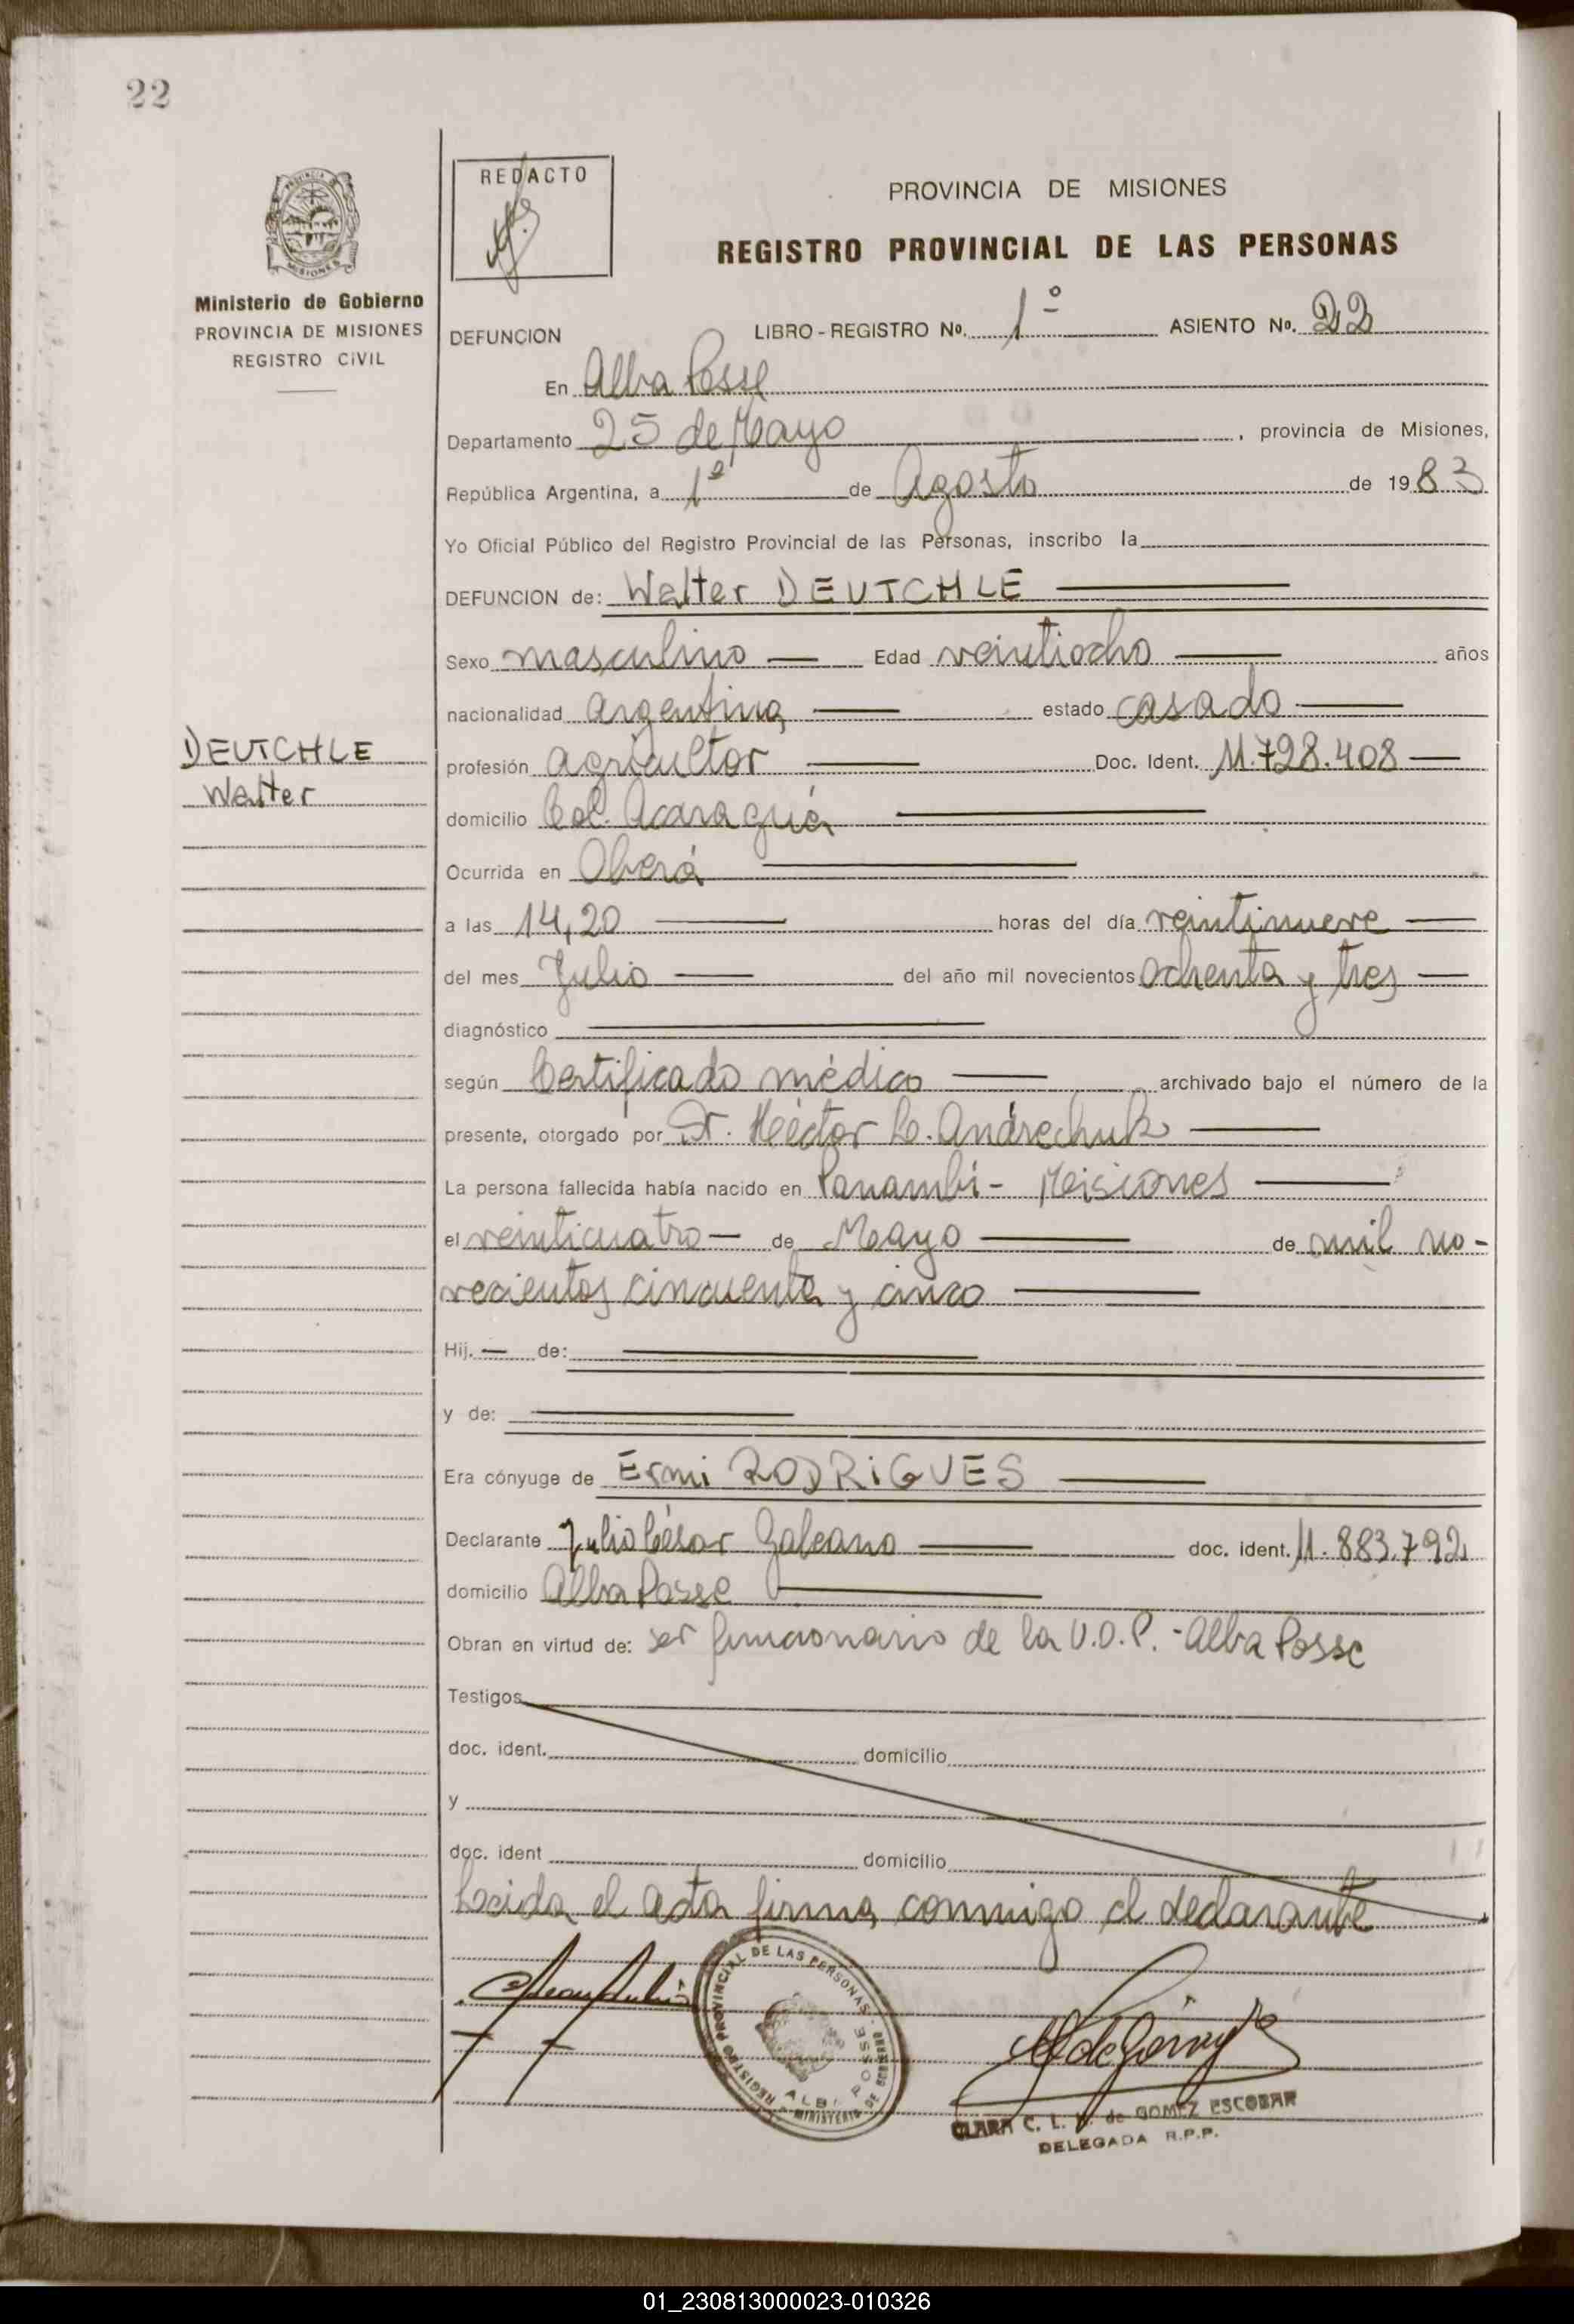 22
REDACTO
PROVINCIA DE MISIONES
REGISTRO PROVINCIAL DE LAS PERSONAS
Ministerio de Gobierno
PROVINCIA DE MISIONES
REGISTRO CIVIL
DEFUNCION LIBRO - REGISTRO Nº. 1º ASIENTO Nº. 22
En Alba Posse
Departamento 25 de Mayo, provincia de Misiones,
República Argentina, a 1º de Agosto de 1983
Yo Oficial Público del Registro Provincial de las Personas, inscribo la
DEFUNCION de: Walter DEUTCHLE
Sexo masculino Edad veintiocho años
nacionalidad argentina estado casado
DEUTCHLE
Walter
profesión agricultor Doc. Ident. 11.728.408
domicilio Col. Acaraguá
Ocurrida en Oberá
a las 14,20 horas del día veintinueve
del mes Julio del año mil novecientos ochenta y tres
diagnóstico
según Certificado médico archivado bajo el número de la
presente, otorgado por Dr. Héctor R. Andrechuk
La persona fallecida había nacido en Panambí - Misiones
el veinticuatro de Mayo de mil no-
vecientos cincuenta y cinco
Hij. de:
y de:
Era cónyuge de Ermi RODRIGUES
Declarante Julio César Galeano doc. ident. 11.883.792
domicilio Alba Posse
Obran en virtud de: ser funcionario de la U.O.P. - Alba Posse
Testigos
doc. ident. domicilio
y
doc. ident domicilio
Leida el acta firma conmigo el declarante
REGISTRO PROVINCIAL DE LAS PERSONAS
ALBA POSSE
MINISTERIO DE GOBIERNO
CLARA C. L. de GOMEZ ESCOBAR
DELEGADA R.P.P.
01_230813000023-010326